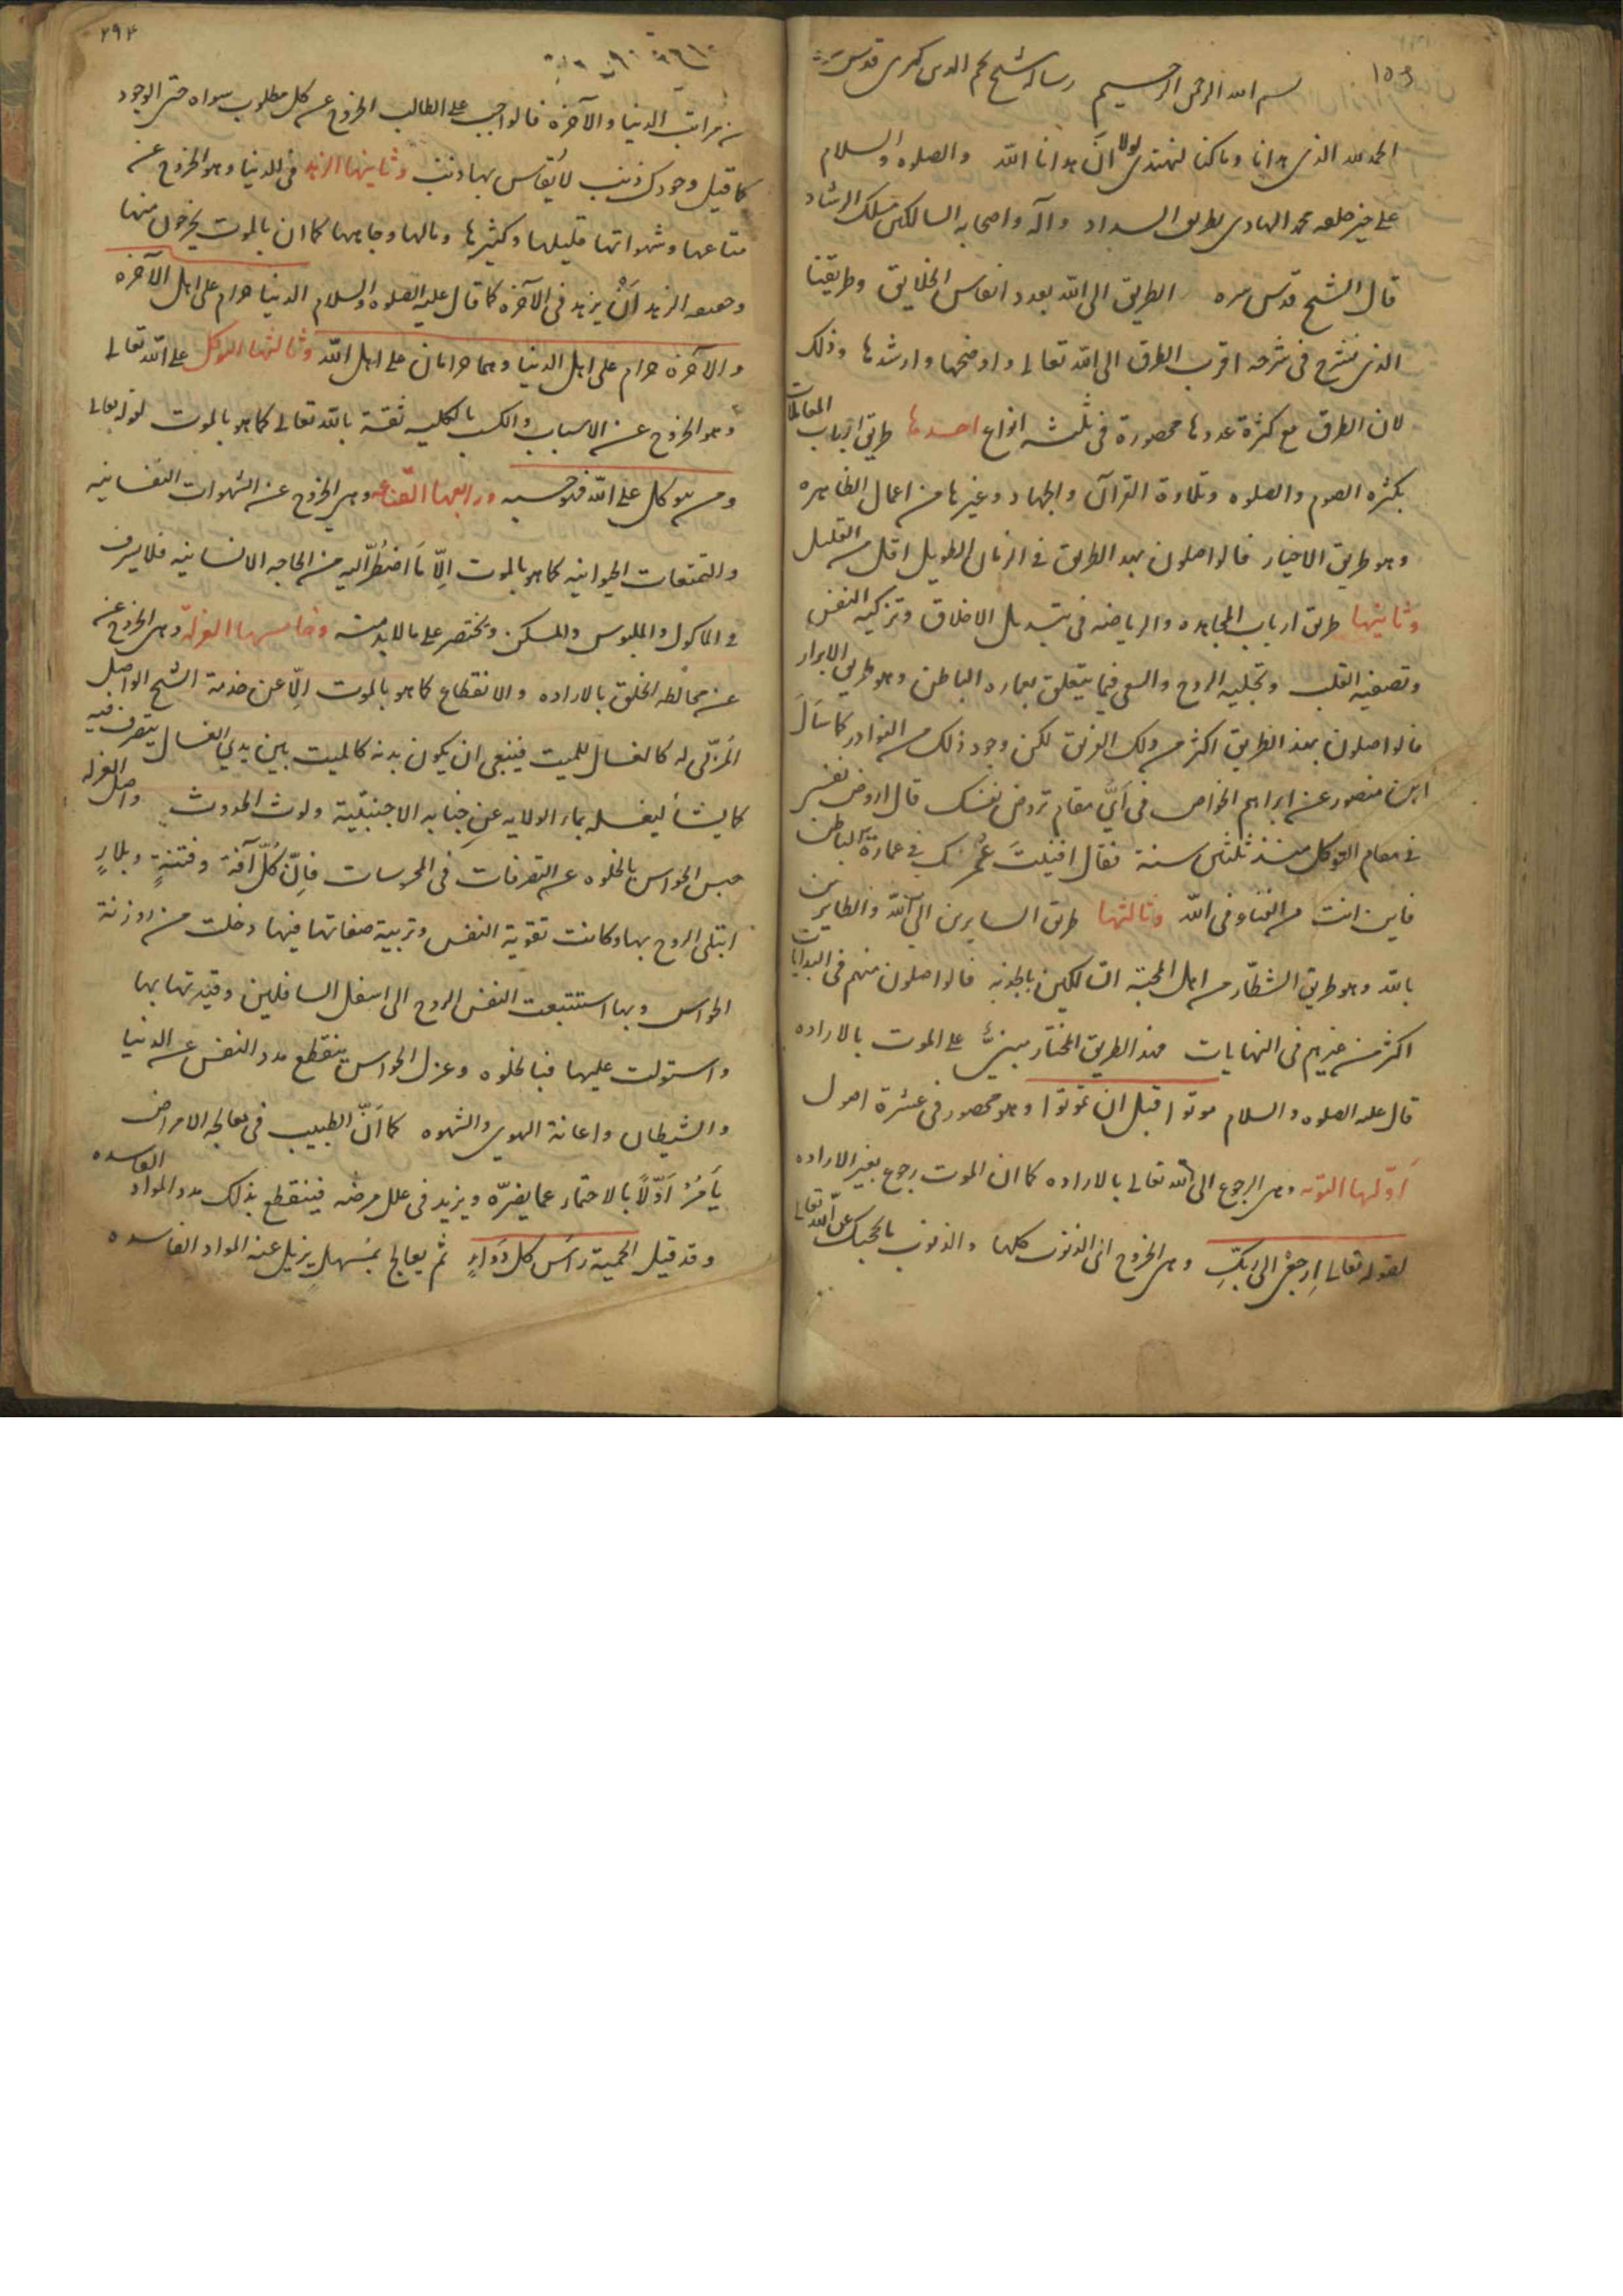 ١٥٣
بسم الله الرحمن الرحيم رساله شيخ نجم الدين كبرى قدس سره
الحمد لله الذى هدانا وما كنا لنهتدى لولا ان هدانا الله والصلوه والسلام
على خير خلقه محمد الهادى بطريق السداد وآله واصحابه السالكين مسلك الرشاد
قال الشيخ قدس سره الطريق الى الله بعدد انفاس الخلايق وطريقنا
الذى نشرع فى شرحه اقرب الطرق الى الله تعالى واوضحها وارشدها وذلك
لان الطرق مع كثرة عددها محصورة فى ثلثه انواع احدها طريق ارباب المعاملات
بكثره الصوم والصلوه وتلاوة القرآن والجهاد وغيرها من اعمال الظاهره
وهو طريق الاخيار فالواصلون بهذ الطريق فى الزمان الطويل اقل من القليل
وثانيها طريق ارباب المجاهده والرياضه فى تبديل الاخلاق وتزكيه النفس
وتصفيه القلب وتجليه الروح والسعى فيما يتعلق بعماره الباطن وهو طريق الابرار
فالواصلون بهذ الطريق اكثر من ذلك الفريق لكن وجود ذلك من النوادر كما سَاَلَ
ابن منصور عن ابراهيم الخواص فى اَىِّ مقام تروض نفسك قال اروض نفسى
فى مقام التوكل منذ ثلثين سنة فقال افنيتَ عُمْرَك فى عمارة الباطن
فاين انت من الفناء فى الله وثالثها طريق السايرين الى الله والطايرين
بالله وهو طريق الشطّار من اهل المحبّة السالكين بالجذبه فالواصلون منهم فى البدايات
اكثر من غيرهم فى النهايات فهذ الطريق المختار مبنىٌّ على الموت بالاراده
قال عليه الصلوه والسلام موتوا قبل ان تموتوا وهو محصور فى عشرة اصول
اَوّلها التوبه وهى الرجوع الى الله تعالى بالاراده كما ان الموت رجوع بغير الاراده
لقوله تعالى اِرجعى الى ربكِّ وهى الخروج الى الذنوب كلها والذنوب ما يحجبك عن الله تعالى
٢٩٤
من مراتب الدنيا والآخره فالواجب على الطالب الخروج عن كل مطلوب سواه حتى الوجود
كما قيل وجودك ذنب لا يُقاس بها ذنب وثانيها الزهد فى الدنيا وهو الخروج عن
متاعها وشهواتها قليلها وكثيرها ومالها وجاهها كما ان بالموت يخرجون منها
وحقيقه الزهد اَنْ يزهد فى الآخره كما قال عليه الصلوه والسلام الدنيا حرام على اهل الآخره
والآخره حرام على اهل الدنيا وهما حرامان على اهل الله وثالثها التوكل على الله تعالى
وهو الخروج عن الاسباب والكسب بالكليه ثقة بالله تعالى كما هو بالموت لقوله تعالى
ومن يتوكل على الله فهو حسبه ورابعها القناعه وهى الخروج عن الشهوات النفسانيه
والتمتعات الحيوانيه كما هو بالموت اِلّا مَا اضطُرَّ اليه من الحاجه الانسانيه فلا يسرف
فى الماكول والملبوس والمسكن ويختصر على ما لابد منه وخامسها العزله وهى الخروج عن
عن مخالطه الخلق بالاراده والانقطاع كما هو بالموت اِلّا عن خدمة الشيخ الواصل
المُربّى له كالغسال للميت فينبغى ان يكون بدنه كالميت بين يدى الغسال يتصرف فيه
كما يشأ ليغسله بماء الولايه عن جنابه الاجنبيّة ولوث الحدوث واصل العزله
حبس الحواس بالخلوه عن التصرفات فى المحسسات فاِنّ كُلّ آفة وفتنةٍ وبلاءٍ
ابتلى الروح بها وكانت تقوية النفس وتربية صفاتها فيها دخلت من روزنة
الحواس وبها استتبعت النفس الروح الى اسفل السافلين وقيدتها بها
واستولت عليها فبالخلوه وعزل الحواس ينقطع مدد النفس عن الدنيا
والشيطان واعانة الهوى والشهوه كما اَنّ الطبيب فى معالجه الامراض
يَامُرُ اَوّلاً بالاحتماء عما يضرّه ويزيد فى علل مرضه فينقطع بذلك مدد المواد الفاسده
وقد قيل الحمية رَاسُ كل دَوَاءٍ ثم يعالج بمُسهلٍ يزيل عنه المواد الفاسده